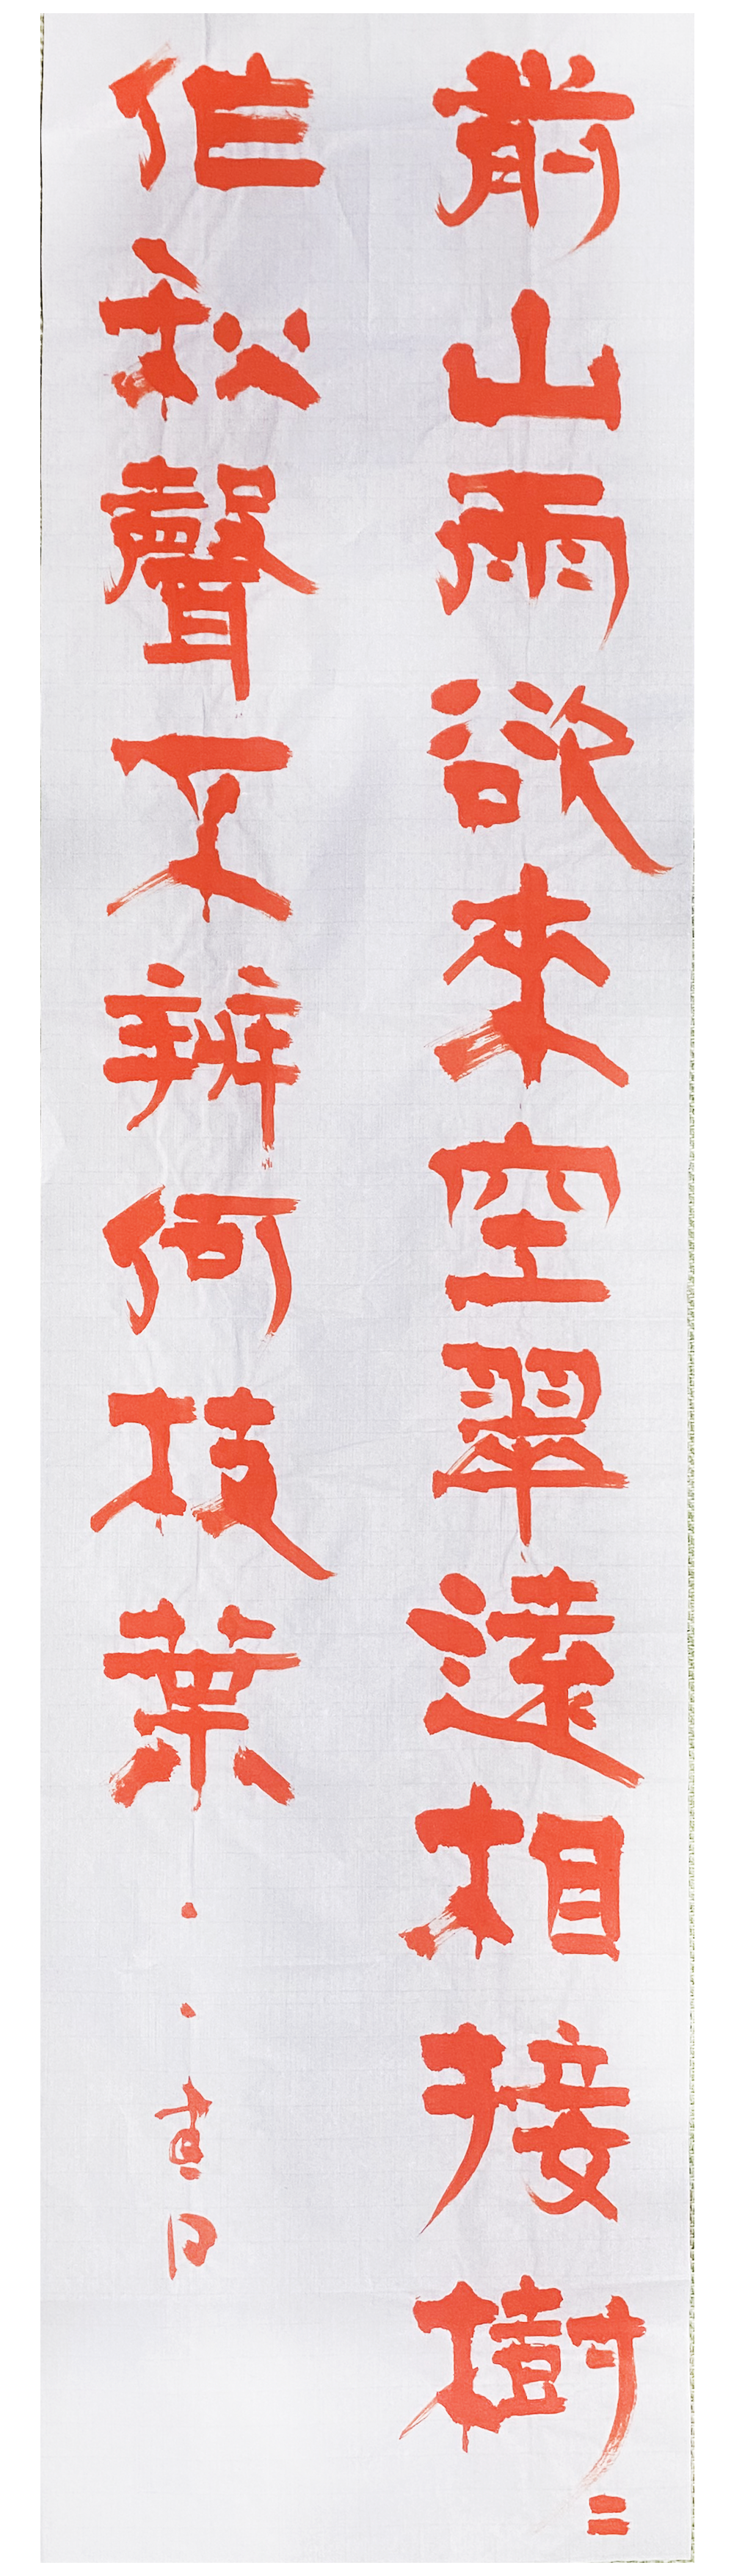 前山雨欲來空翠遠相接樹〻
作秋聲不辨何枝葉